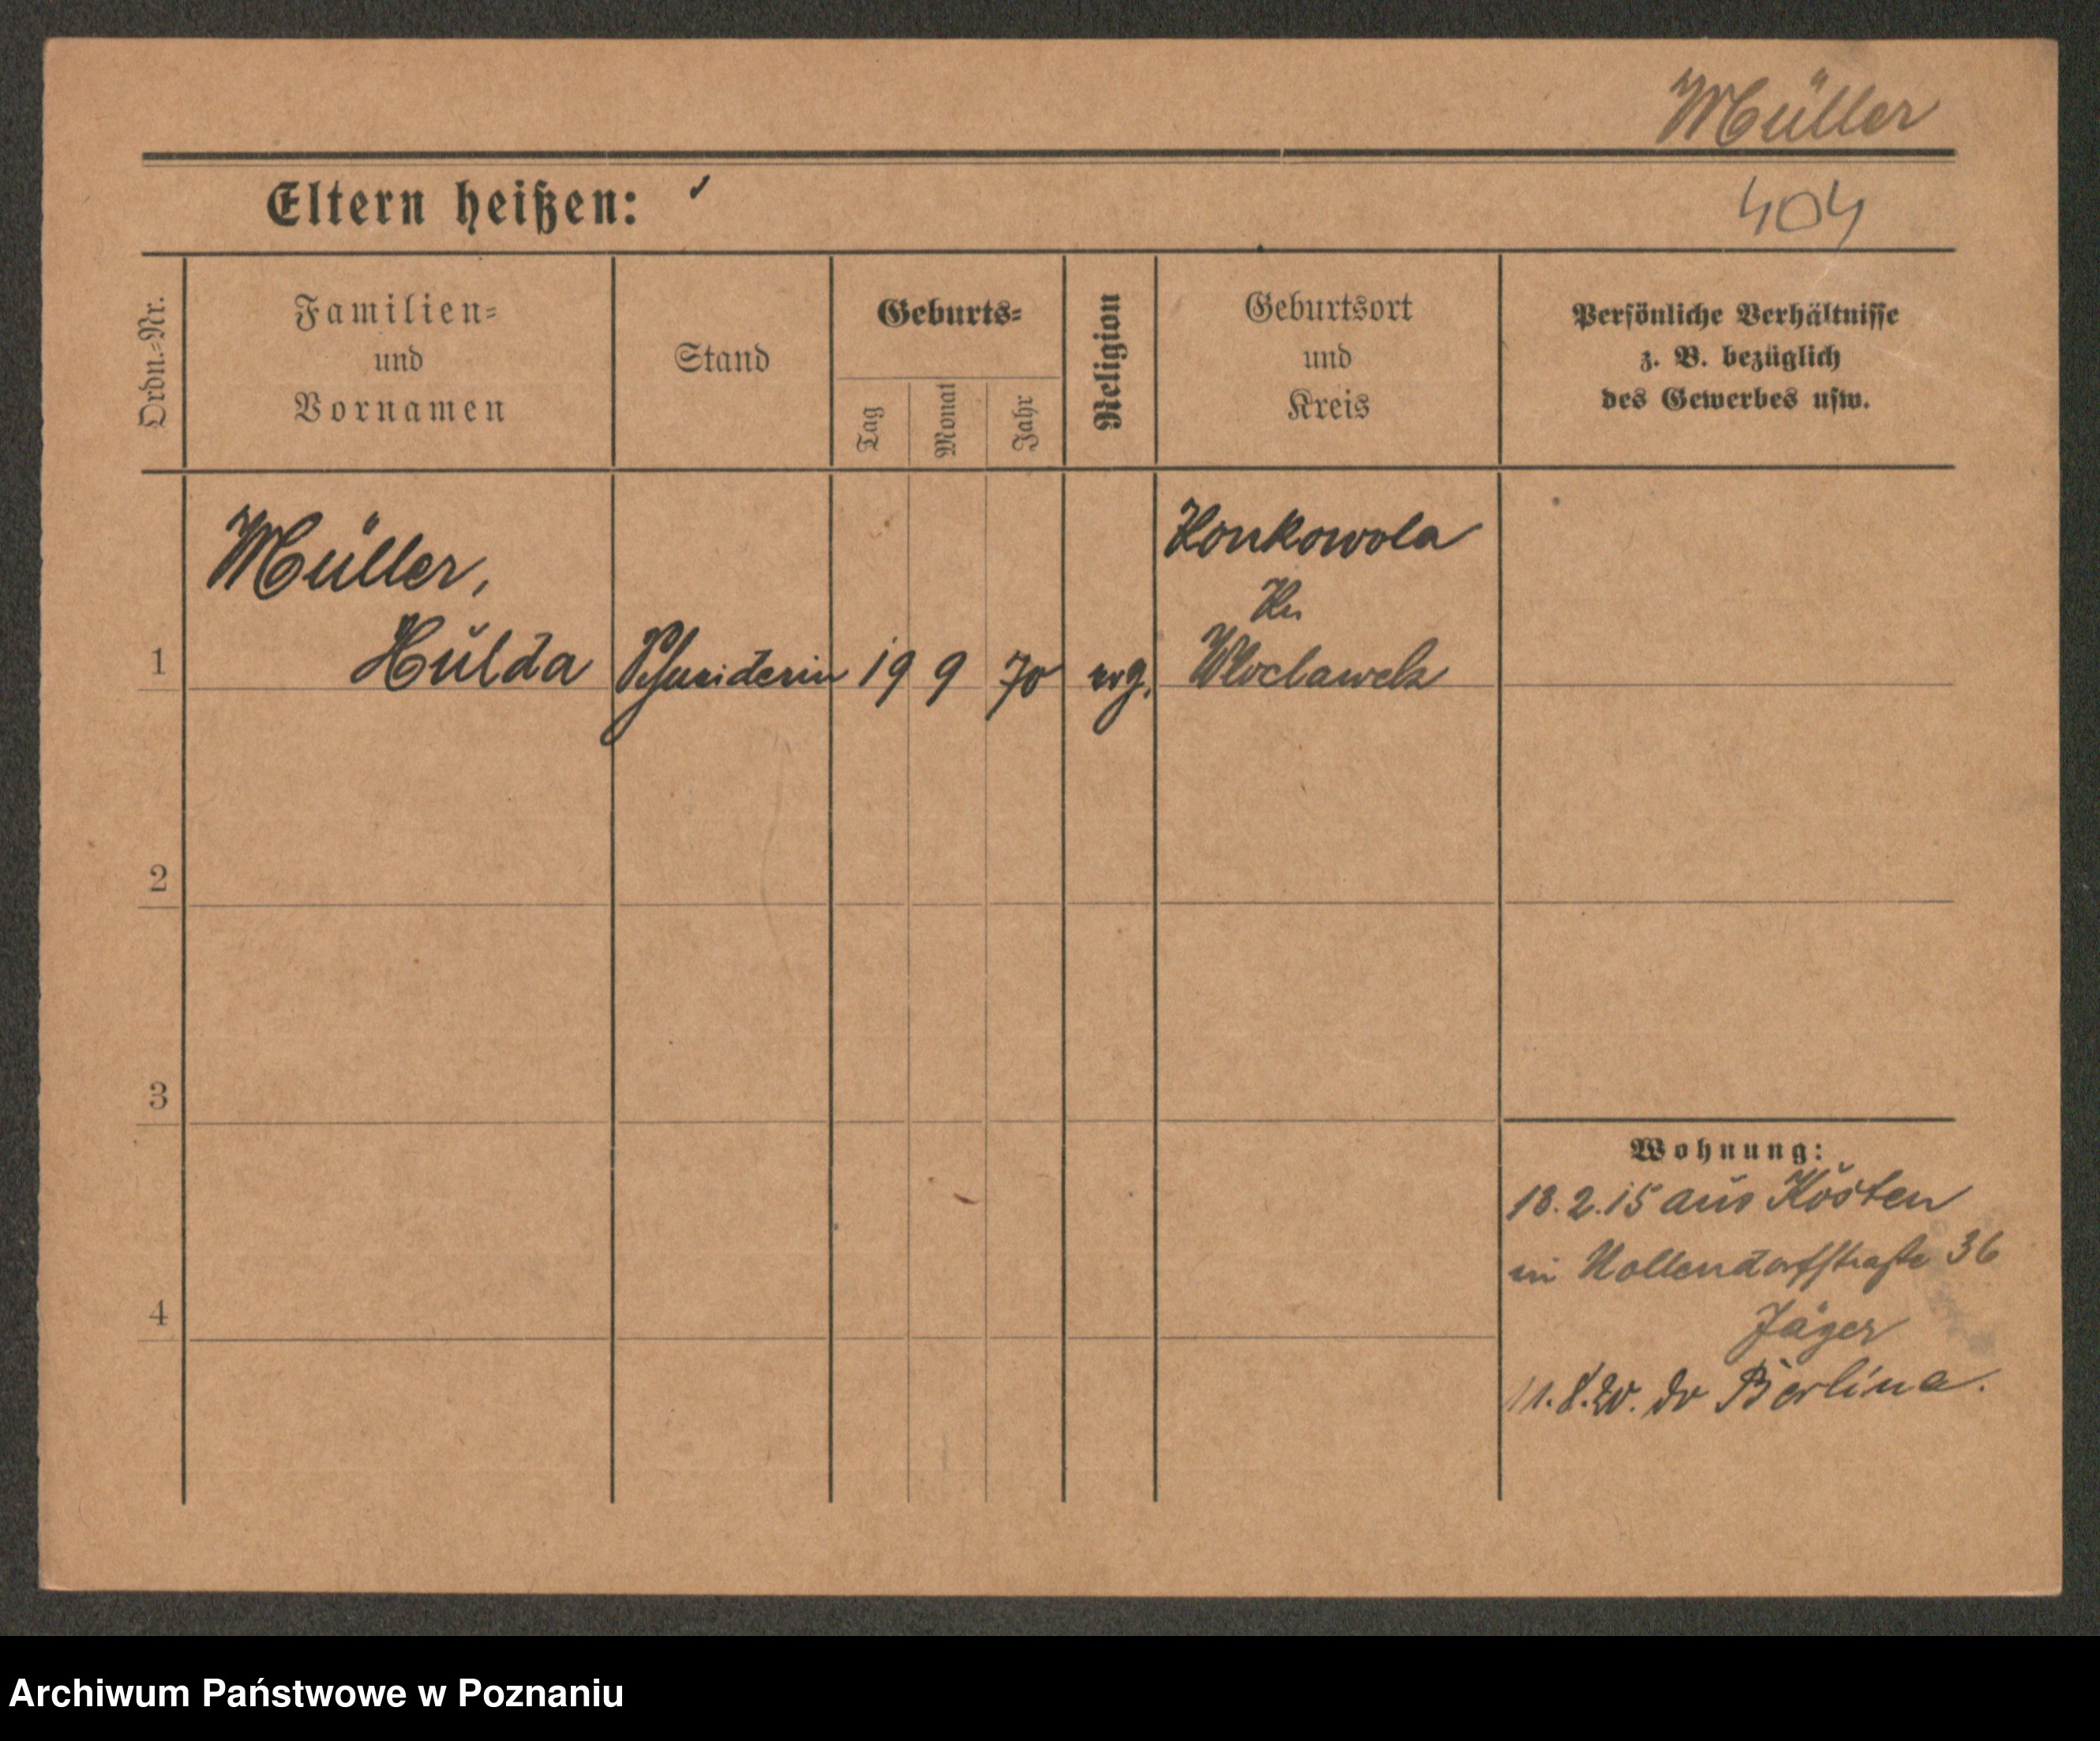 Müller
Eltern heißen:
404
Ordn.-Nr.
Familien-
und
Vornamen
Stand
Geburts-
Tag
Monat
Jahr
Religion
Geburtsort
und
Kreis
Persönliche Verhältnisse
z. B. bezüglich
des Gewerbes usw.
Müller,
Hulda
Schneiderin
19
9
70
evg.
Konkowola
Kr.
Wloclawek
1
2
3
4
Wohnung:
18.2.15 aus Kosten
in Nollendorfstraße 36
Jäger
11.8.20. do Berlina.
Archiwum Państwowe w Poznaniu